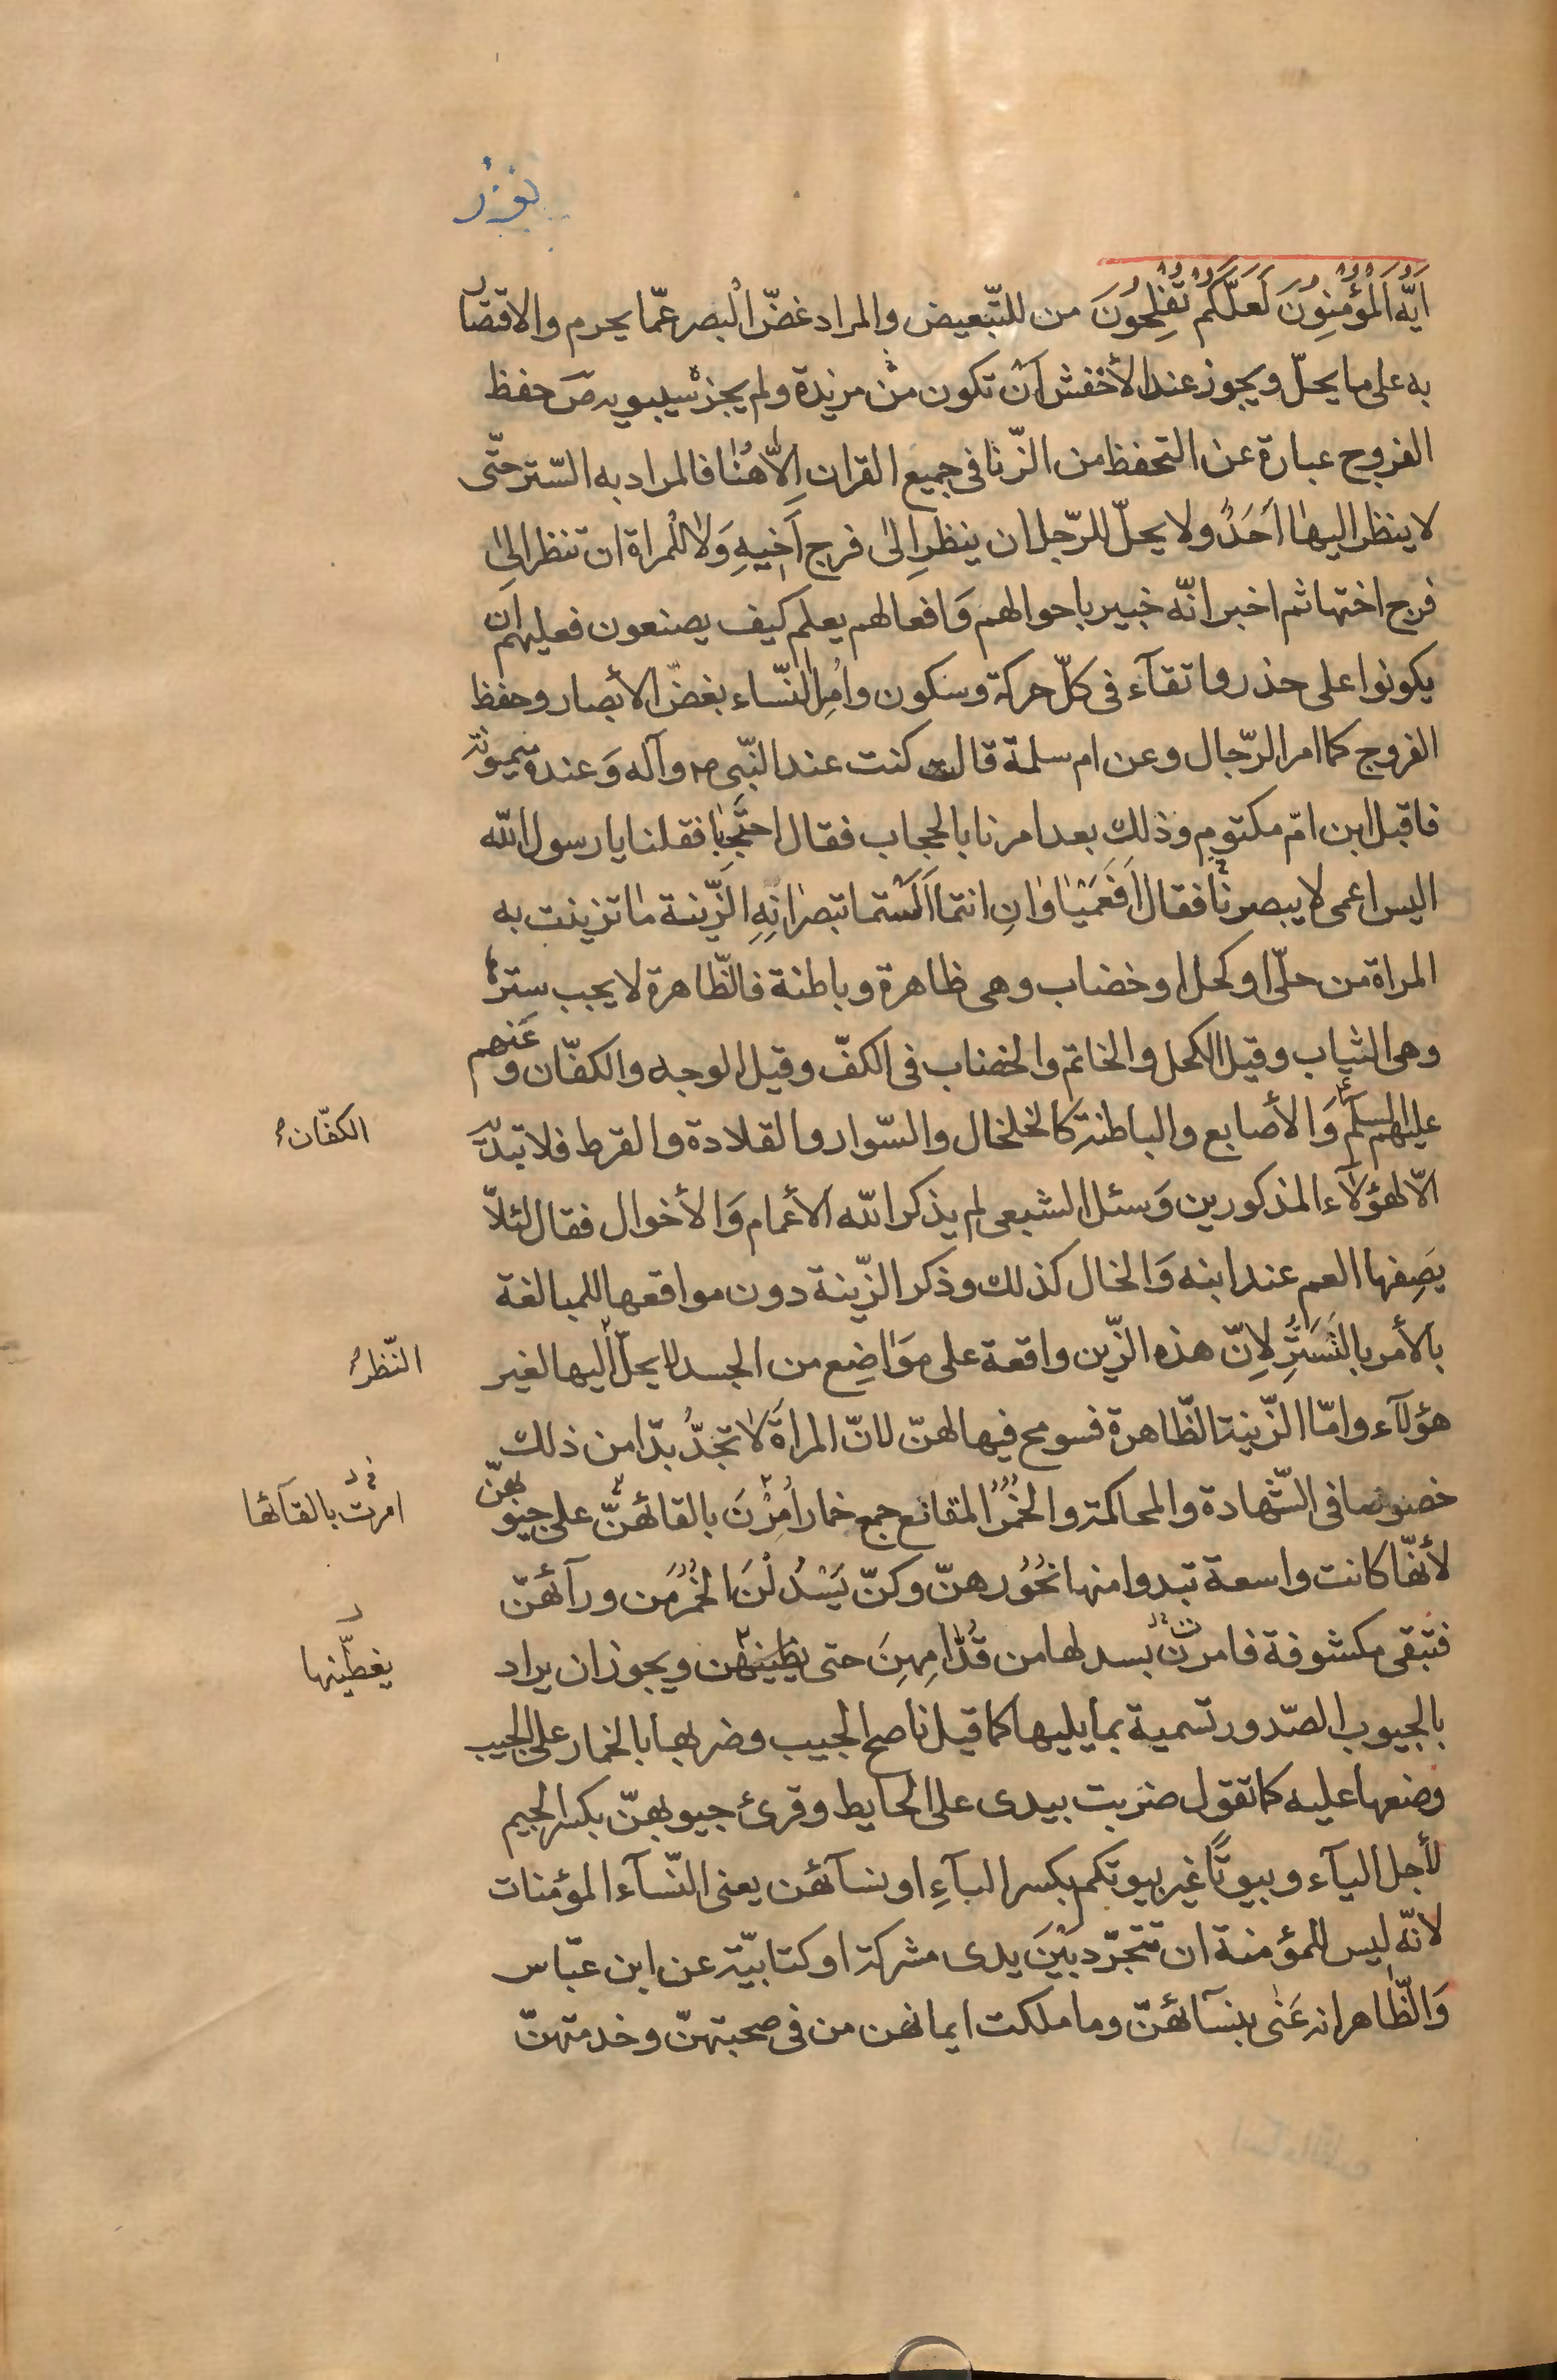 نور
اَيُّهَ الْمُؤْمِنُونَ لَعَلَّكُمْ تُفْلِحُونَ من للتّبعيض والمراد غضّ البصر عمّا يحرم والاقتصار
به على ما يحلّ ويجوز عند الأخفش اَنْ تكون منْ مزيدة ولم يجزه سيبويه صَ حفظ
الفروج عبارة عن التحفظ من الزّنا فى جميع القران اِلّا هُنٰا فالمراد به السّتر حتّى
لا ينظر اليها اَحَدٌ ولا يحلّ للرّجل ان ينظر اِلىٰ فرج اَخيهِ وَلا للمراة ان تنظر الىٰ
فرج اختها ثم اخبر انّه خبير باحوالهم وَافعالهم يعلم كيف يصنعون فعليهم اَن
يكونوا على حذر واتقآء فى كلّ حركة وسكون واُمِرَ النّساء بغضّ الأبصار وحفظ
الفروج كما امر الرّجال وعن ام سلمة قالت كنت عند النّبى ص وآله وَعنده ميمونة
فاقبل ابن امّ مكتومٍ وذلك بعد امرنا بالحجاب فقال احتَجِبٰا فقلنا يا رسول اللّه
اليس اعمى لا يبصرنا فقال اَفَعَمْيٰاوٰانِ انتما اَلَسْتما تبصرٰانِهِ الزّينة مٰا تزينت به
المراة من حلّى او كحل او خضاب وهى ظاهرة وباطنة فالظّاهرة لا يجب سترها
وهى الثياب وقيل الكحل والخاتم والخضاب فى الكفّ وقيل الوجه والكفّان وعَنهم
عليهم السلم وَالأصابع والباطنة كالخلخال والسّوار والقلادة والقرط فلا تبديه
الكفّان
الّا لهؤلآء المذكورين وَسئل الشبعى لم يذكر اللّه الأعمام وَالأخوال فقال لئلّا
يَصِفها العم عند ابنه وَالخال كذلك وذكر الزّينة دون مواقعها للمبالغة
بالأمر بالتَسَتُّرِ لاِنّ هذه الزّين واقعة على موَاضِع من الجسد لا يحلّ اليها لغير
النّظر
هؤلآء وامّا الزّينة الظّاهرة فسومح فيها لهنّ لانّ المراةَ لا تجدُ بدّا من ذلك
خصوصا فى الشّهادة والمحاكمة والخُمُرُ المقانع جمع خمار اُمِرْنَ بالقائهنّ على جيوبهنّ
امرت بالقآئها
لأنّها كانت واسعة تبدوا منها نحُورهنّ وكنّ يَسْدُلْنَ الخُمُرَ من ورآئهنّ
فتبقى مكشوفة فامرن بسدلها من قُدّٰامِهِنَ حتى يغطينهن ويجوز ان يراد
يغطّينها
بالجيوب الصّدور تسمية بما يليها كما قيل ناصح الجيب وضربها بالخمار على الجيب
وضعها عليه كما تقول ضربت بيدى على الحايط وقرئ جيوبهنّ بكسر الجيم
لأجل اليآء وبيوتًا غير بيوتكم بكسر البآءِ او نسآئهن يعنى النّسآء المؤمنات
لانّه ليس للمؤمنة ان تتجرّد بَيْنَ يدى مشركة او كتابيّة عن ابن عبّاس
وَالظّاهر انه عَنٰى بنسآئهنّ وما ملكت ايمانهن من فى صحبتهنّ وخدمتهنّ